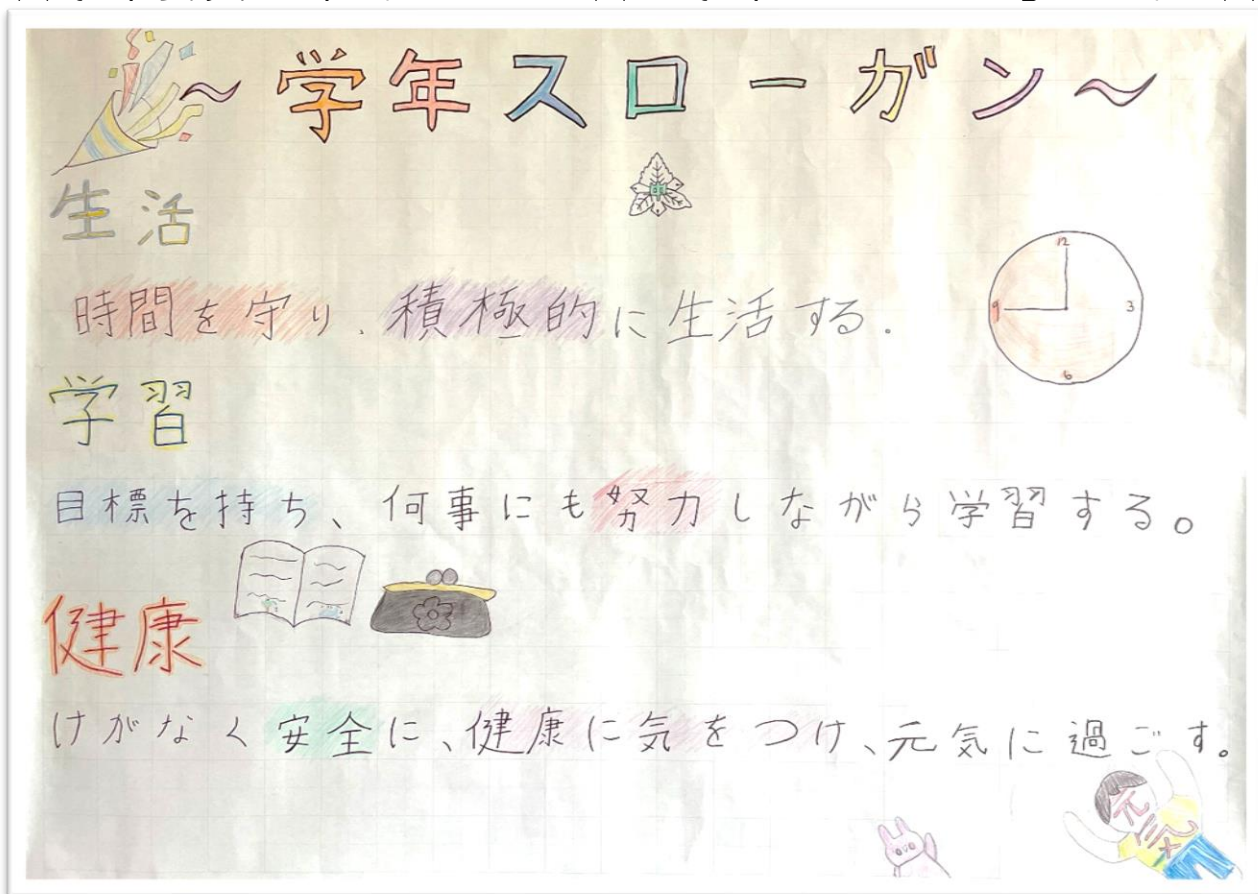 ～学年スローガン～
中
生活
12
3
6
9
時間を守り、積極的に生活する.
学習
目標を持ち、何事にも努力しながら学習する。
健康
けがなく安全に、健康に気をつけ、元気に過ごす。
元気